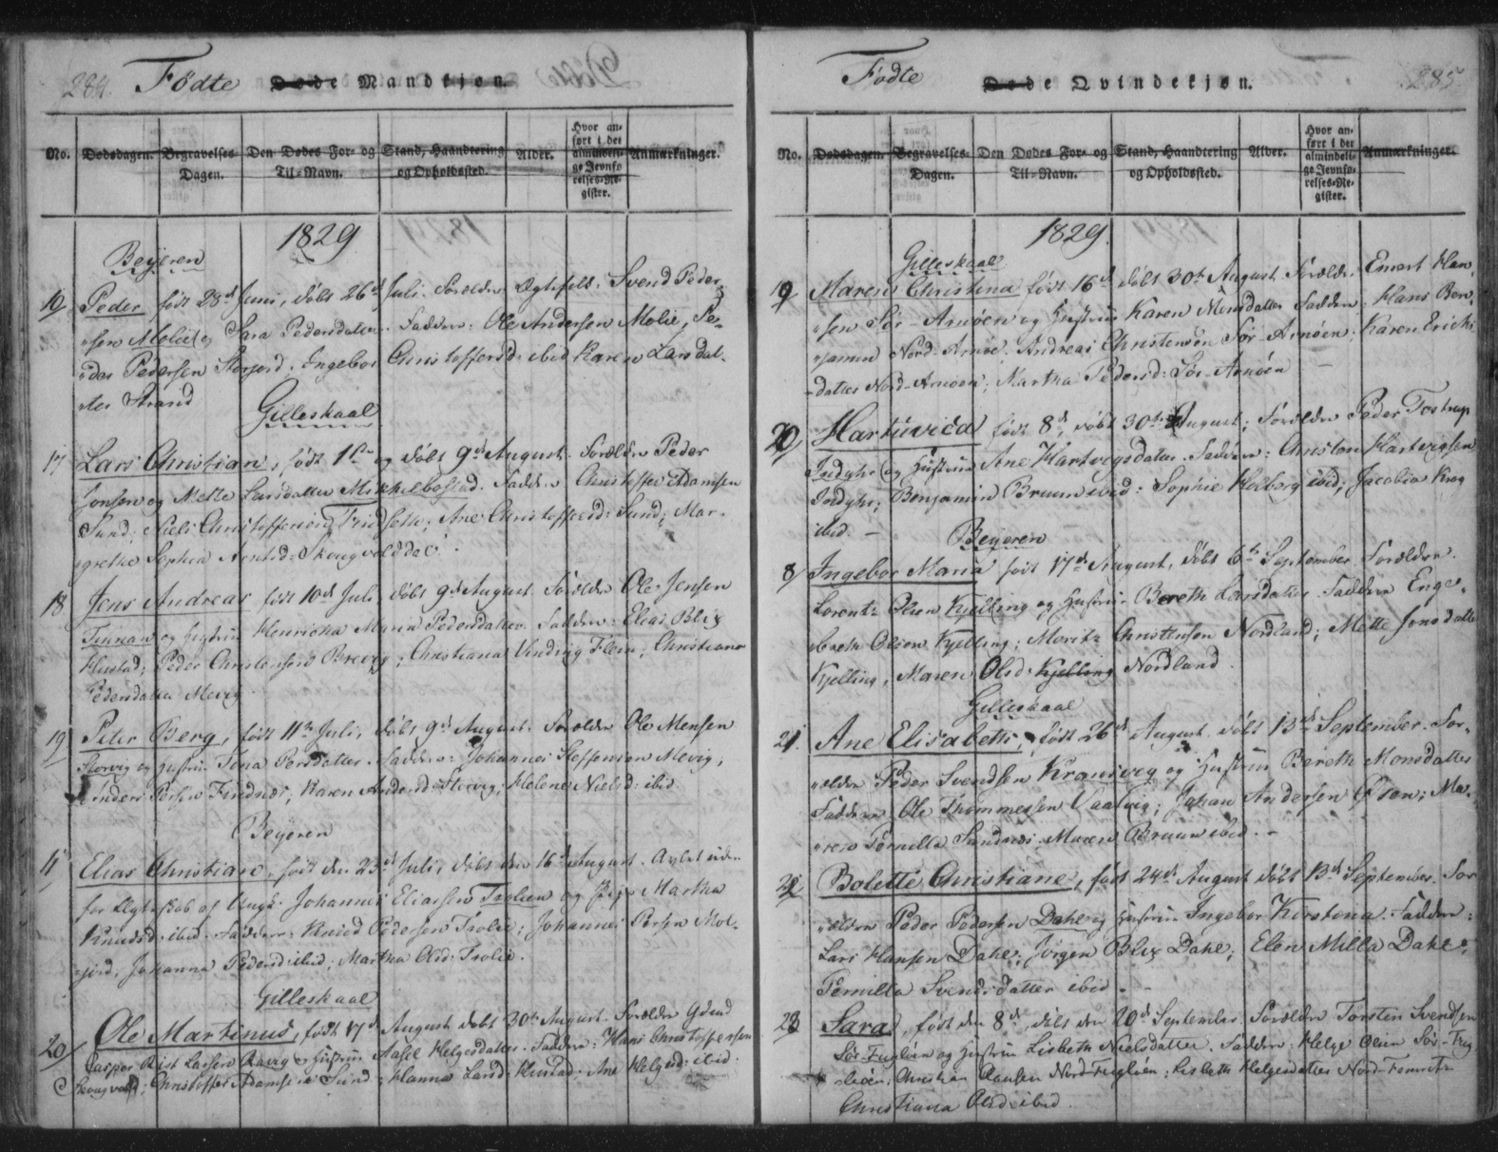 284. Fødte Døde Mandkjøn.
No. Dødsdagen. Begravelses-Dagen. Den Dødes For- og Til-Navn. Stand, Haandtering og Opholdssted. Alder. Hvor anført i det almindelige Jevnførelses-Register. Anmærkninger.
1829
Beyeren
16 Peder født 28d Juni, døbt 26d Juli. Forældre Ægtefolk. Svend Peder-
sen Molid og Sara Pedersdatter. Faddere: Ole Andersen Molid, Pe-
der Pedersen Storjord. Ingebor Christoffersd: ibid Karen Larsdat-
ter Strand
Gilleskaal
17 Lars Christian, født 1ste og døbt 9d August. Forældre Peder
Jonsen og Mette Larsdatter Mikkelbostad. Faddere Christoffer Adamsen
Sund; Niels Christoffersen ; Ane Christoffersd: Sund; Mar-
grethe Sophia Arntsd: Skougvolddal.
18 Jens Andreas født 10d Juli, døbt 9d August. Forældre Ole Jensen
Finnan og Hustru Henricka Maria Pedersdatter. Faddere: Elias Blix
Hustad; Peder Christensen ; Christiana Vinding Flein; Christiana
Pedersdatter Mevig.
19 Peter Berg, født 11te Juli, døbt 9d August. Forældre Ole Mensen
Storvig og Hustru Persdatter. Faddere: Johannes Steffensen Mevig;
Anders Persen Findnæs; Karen Andersd: Storvig; Helene Nielsd: ibid
Beyeren
11 Elias Christian, født den 23d Juli, døbt den 16d August. Avlet uden
for Ægteskab af Ungk: Johannes Eliassen Trolien og Pige Martha
Knudsd: ibid. Faddere: Knud Pedersen Trolie; Johannes Persen Mol-
jord, Johanna Pedersd: ibid; Martha Olsd: Trolie.
Gilleskaal
20 Ole Martinus, født 17d August døbt 30te August. Forældre
Casper Rist Larsen og Hustru Aasel Helgesdatter. Faddere: Hans Christoffersen
Skougvold; Christoffer Adamsen Sund; Hanna Larsd: Hustad; Ane Helgesd: ibid.
Fødte Døde Qvindekjøn. 285
No. Dødsdagen. Begravelses-Dagen. Den Dødes For- og Til-Navn. Stand, Haandtering og Opholdssted. Alder. Hvor anført i det almindelige Jevnførelses-Register. Anmærkninger.
1829.
Gilleskaal
19 Maren Christina født 16d døbt 30te August. Forældre: Emert Han-
sen Sør-Arnøen og Hustru Karen Monsdatter Faddere: Hans Ben-
jamin Nord-Arnøe. Andreas Christensen Sør-Arnøen; Karen Erichs
datter Nord-Arnøen; Martha Pedersd: Sør-Arnøen
20 Hartuvica født 8d, døbt 30te August; Forældre Peder Tostrup
Indyhr og Hustrue Ane Hartvigsdatter. Faddere: Christen Hartvigsen
Indyhr; Benjamin Bruun ibid: Sophie Holberg ibid; Jacobia Krog
ibid.
Beyeren
8 Ingebor Maria født 17d August, døbt 6te September. Forældre.
Lorentz Olsen Kjelling og Hustru Bereth Larsdatter. Faddere Enge-
breth Olsen Kjelling; Moritz Christensen Nordland; Mette Jonsdatter
Kjelling, Maren Olsd: Kjelling Nordland.
Gilleskaal
21 Ane Elisabeth, født 26d August døbt 13d September. For-
ældre Peder Svendsen Kransvig og Hustru Bereth Monsdatter
Faddere Ole Thommesen Vaatvig; Johan Andersen ; Ma-
ren Pernilla Sundnæs. Maren Bruun ibid.
22 Bolette Christiane, født 24d August døbt 13d September. For
ældre Peder Pedersen Dahl og Hustru Ingebor Kirstena. Faddere:
Lars Hansen Dahl; Jørgen Blix Dahl; Elen Milla Dahl;
Pernilla Svendsdatter ibid.
23 Sara, født den 8d, døbt den 20d September. Forældre Torsten Svendsen
Sør-Fugløen og Hustrue Lisbeth Nielsdatter. Faddere: Helge Olsen Sør-Fug
løen; Christian Hansen Nord-Fugløen; Lisbeth Helgesdatter Nord-
Christiana Olsd: ibid.